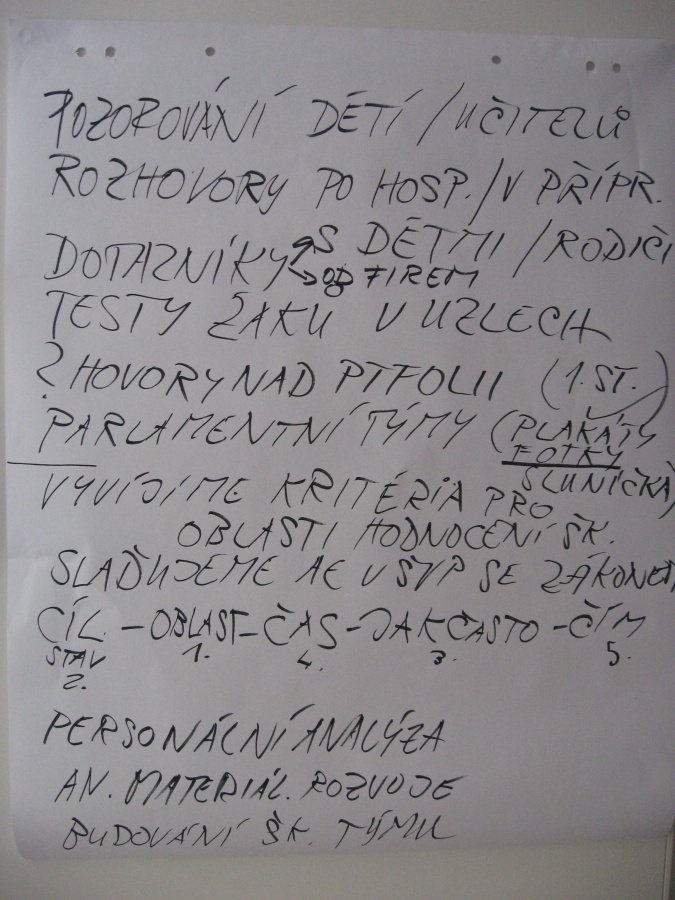 POZOROVÁNÍ DĚTÍ / UČITELŮ
ROZHOVORY PO HOSP. / V PŘÍPR.
S DĚTMI / RODIČI
DOTAZNÍKY OD FIREM
TESTY ŽÁKU V UZLECH
? HOVORY NAD PTFOLII (1. ST.)
PARLAMENTNÍ TÝMY (PLAKÁTY
FOTKY
SLUNÍČKA)
VYVÍJÍME KRITÉRIA PRO
OBLASTI HODNOCENÍ ŠK.
SLAĎUJEME AE V ŠVP SE ZÁKONEM
CÍL – OBLAST – ČAS – JAK ČASTO – ČÍM
STAV 1. 4. 3. 5.
2.
PERSONÁLNÍ ANALÝZA
AN. MATERIÁL. ROZVOJE
BUDOVÁNÍ ŠK. TÝMU